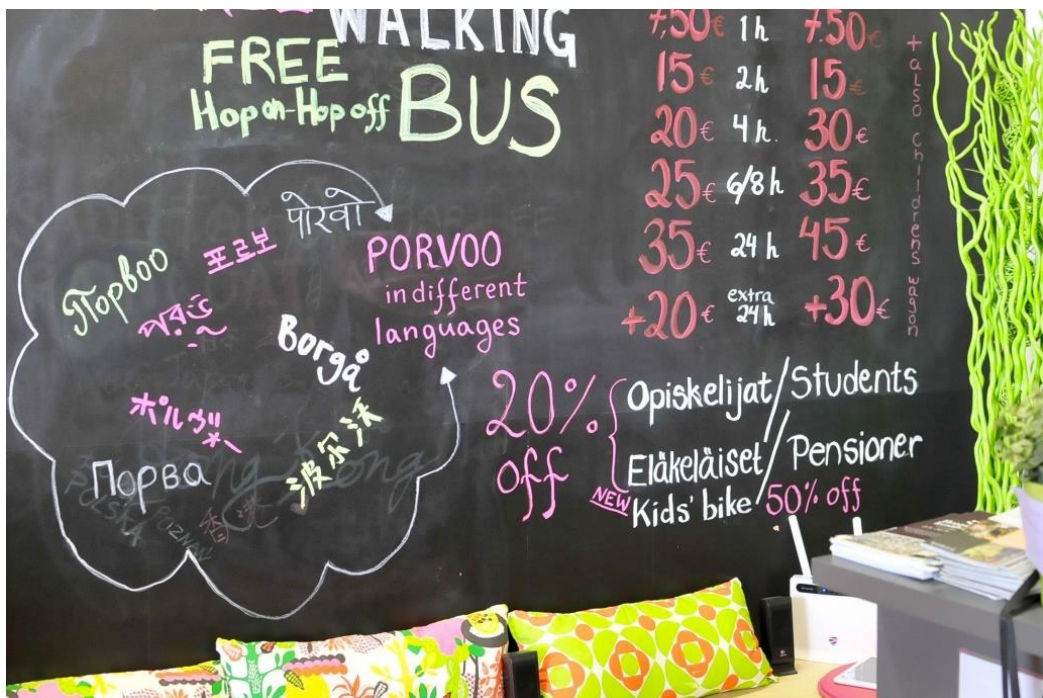 WALKING
FREE
Hop on-Hop off BUS
7,50€ 1h 7.50€
15€ 2h 15€
20€ 4h. 30€
25€ 6/8h 35€
35€ 24h 45€
+20€ extra 24h +30€
+also childrens wagon
पोरवो
포르보
Порвоо
PORVOO
in different
languages
Borgå
ポルヴォー
波尔沃
Порва
20% off
Opiskelijat/Students
Eläkeläiset/Pensioner
NEW Kids' bike/50% off
POZNAŃ